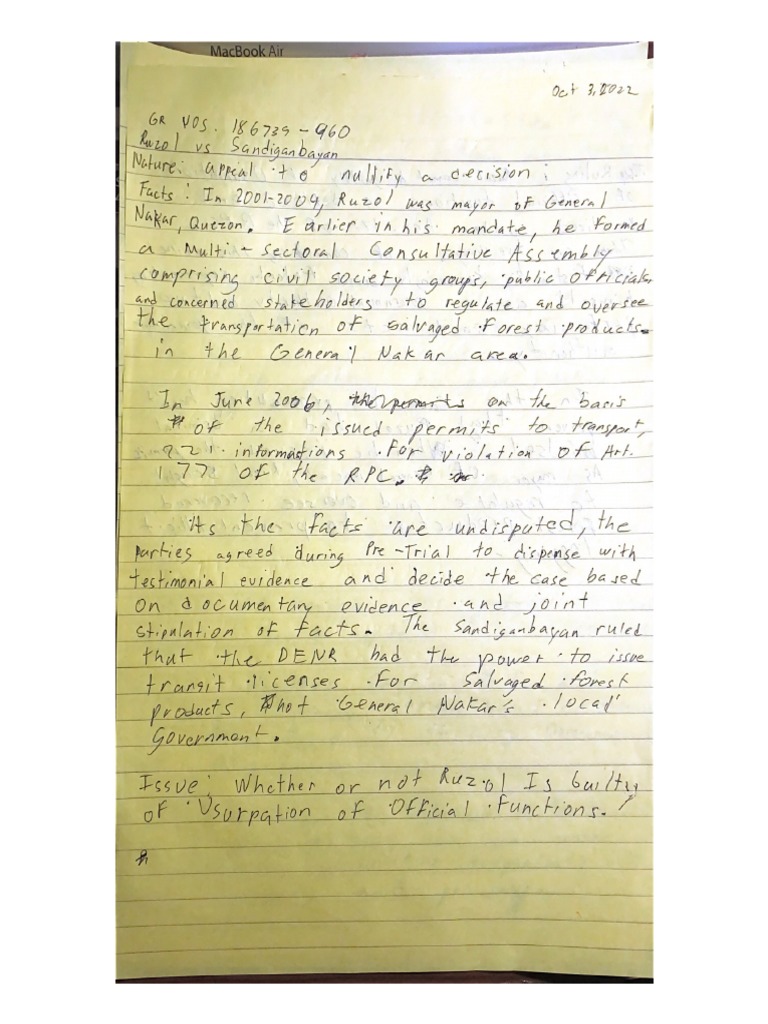 MacBook Air
Oct 3, 2022
GR NOS. 186739-960
Ruzol vs Sandiganbayan
Nature: appeal to nullify a decision
Facts: In 2001-2004, Ruzol was mayor of General
Nakar, Quezon. Earlier in his mandate, he formed
a Multi-sectoral Consultative Assembly
comprising civil society groups, public officials
and concerned stakeholders to regulate and oversee
the transportation of salvaged forest products
in the General Nakar area.
In June 2006, the permits on the basis
of the issued permits to transport,
221 informations for violation of Art.
177 of the RPC.
As the facts are undisputed, the
parties agreed during Pre-Trial to dispense with
testimonial evidence and decide the case based
on documentary evidence and joint
stipulation of facts. The Sandiganbayan ruled
that the DENR had the power to issue
transit licenses for Salvaged forest
products, not General Nakar's local
Government.
Issue: Whether or not Ruzol Is Guilty
of Usurpation of Official Functions.